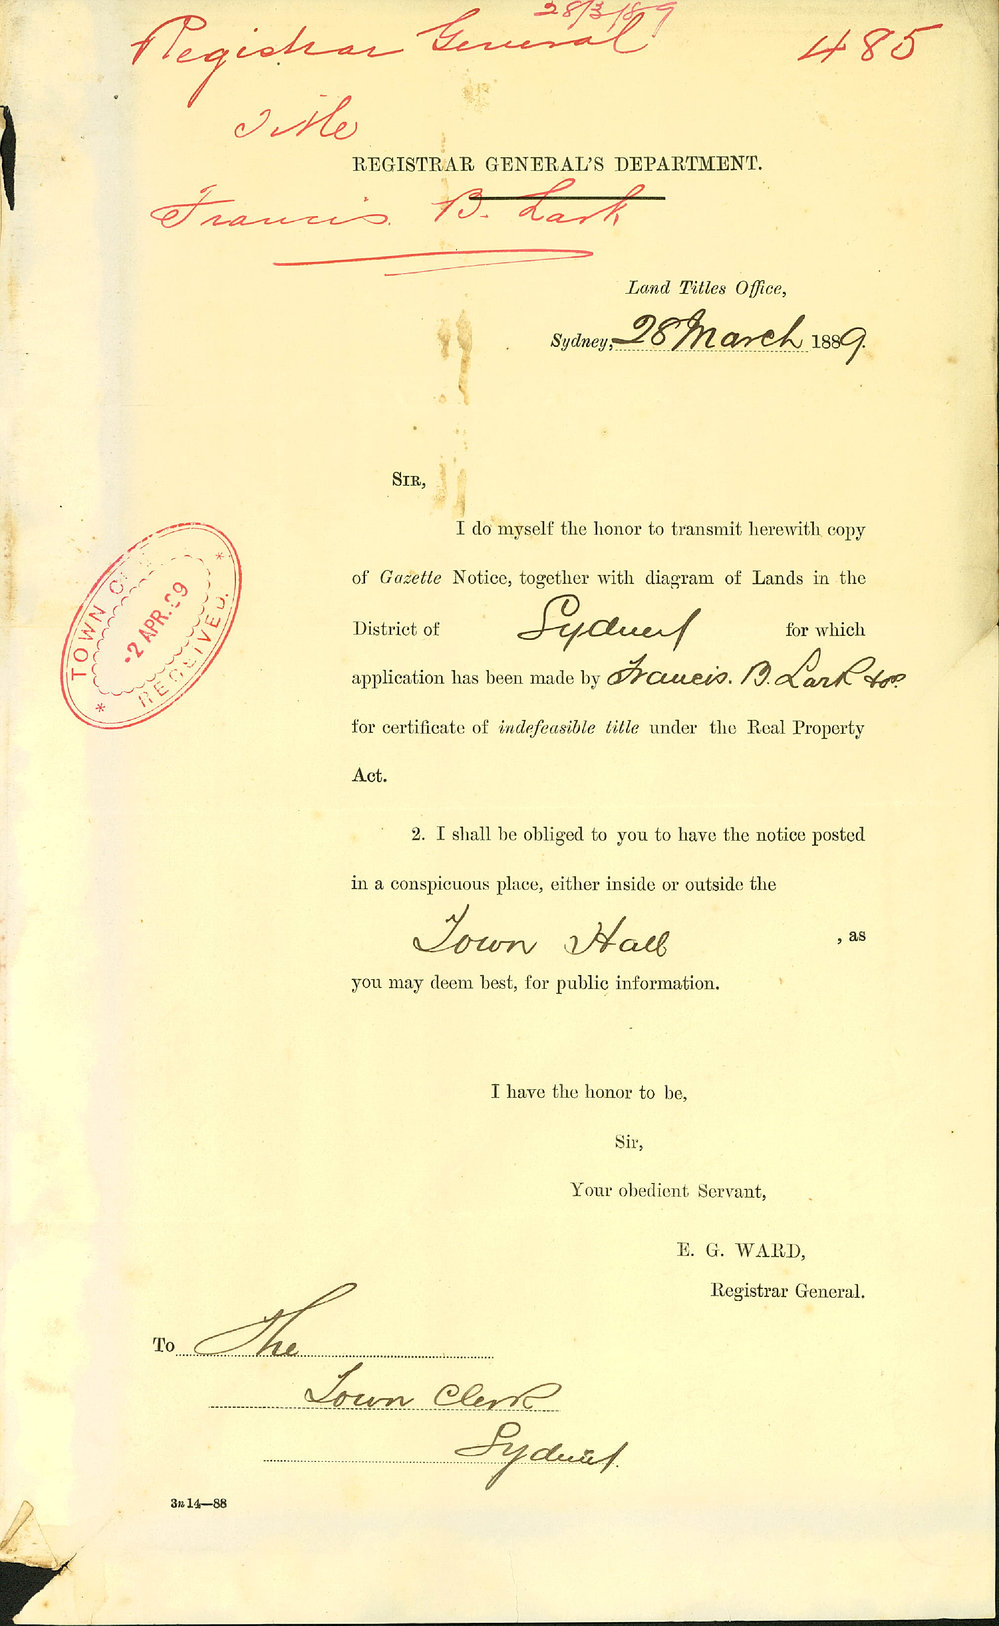 28/3/89
Registrar General 485
Title
REGISTRAR GENERAL'S DEPARTMENT.
Francis B. Lark
Land Titles Office,
Sydney, 28 March 1889.
SIR,
I do myself the honor to transmit herewith copy
of Gazette Notice, together with diagram of Lands in the
District of Sydney for which
application has been made by Francis. B. Lark
for certificate of indefeasible title under the Real Property
Act.
2. I shall be obliged to you to have the notice posted
in a conspicuous place, either inside or outside the
Town Hall , as
you may deem best, for public information.
I have the honor to be,
Sir,
Your obedient Servant,
E. G. WARD,
Registrar General.
To The
Town Clerk
Sydney.
3n14—88
TOWN
-2 APR. 89
RECEIVED.